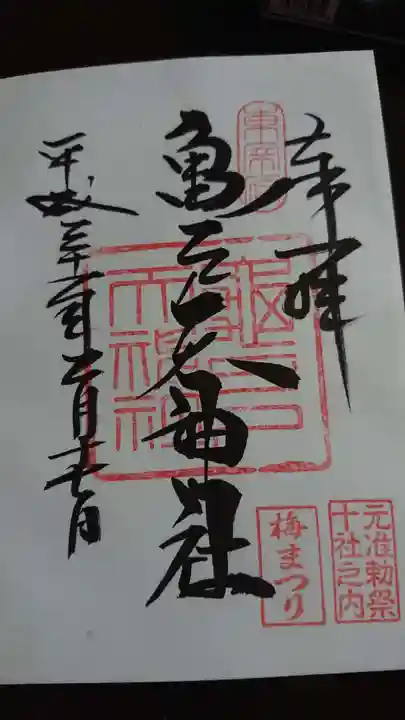 奉拝
東宰府
亀戸天神社
亀戸天神社
平成三十一年二月十七日
元准勅祭
十社之内
梅まつり